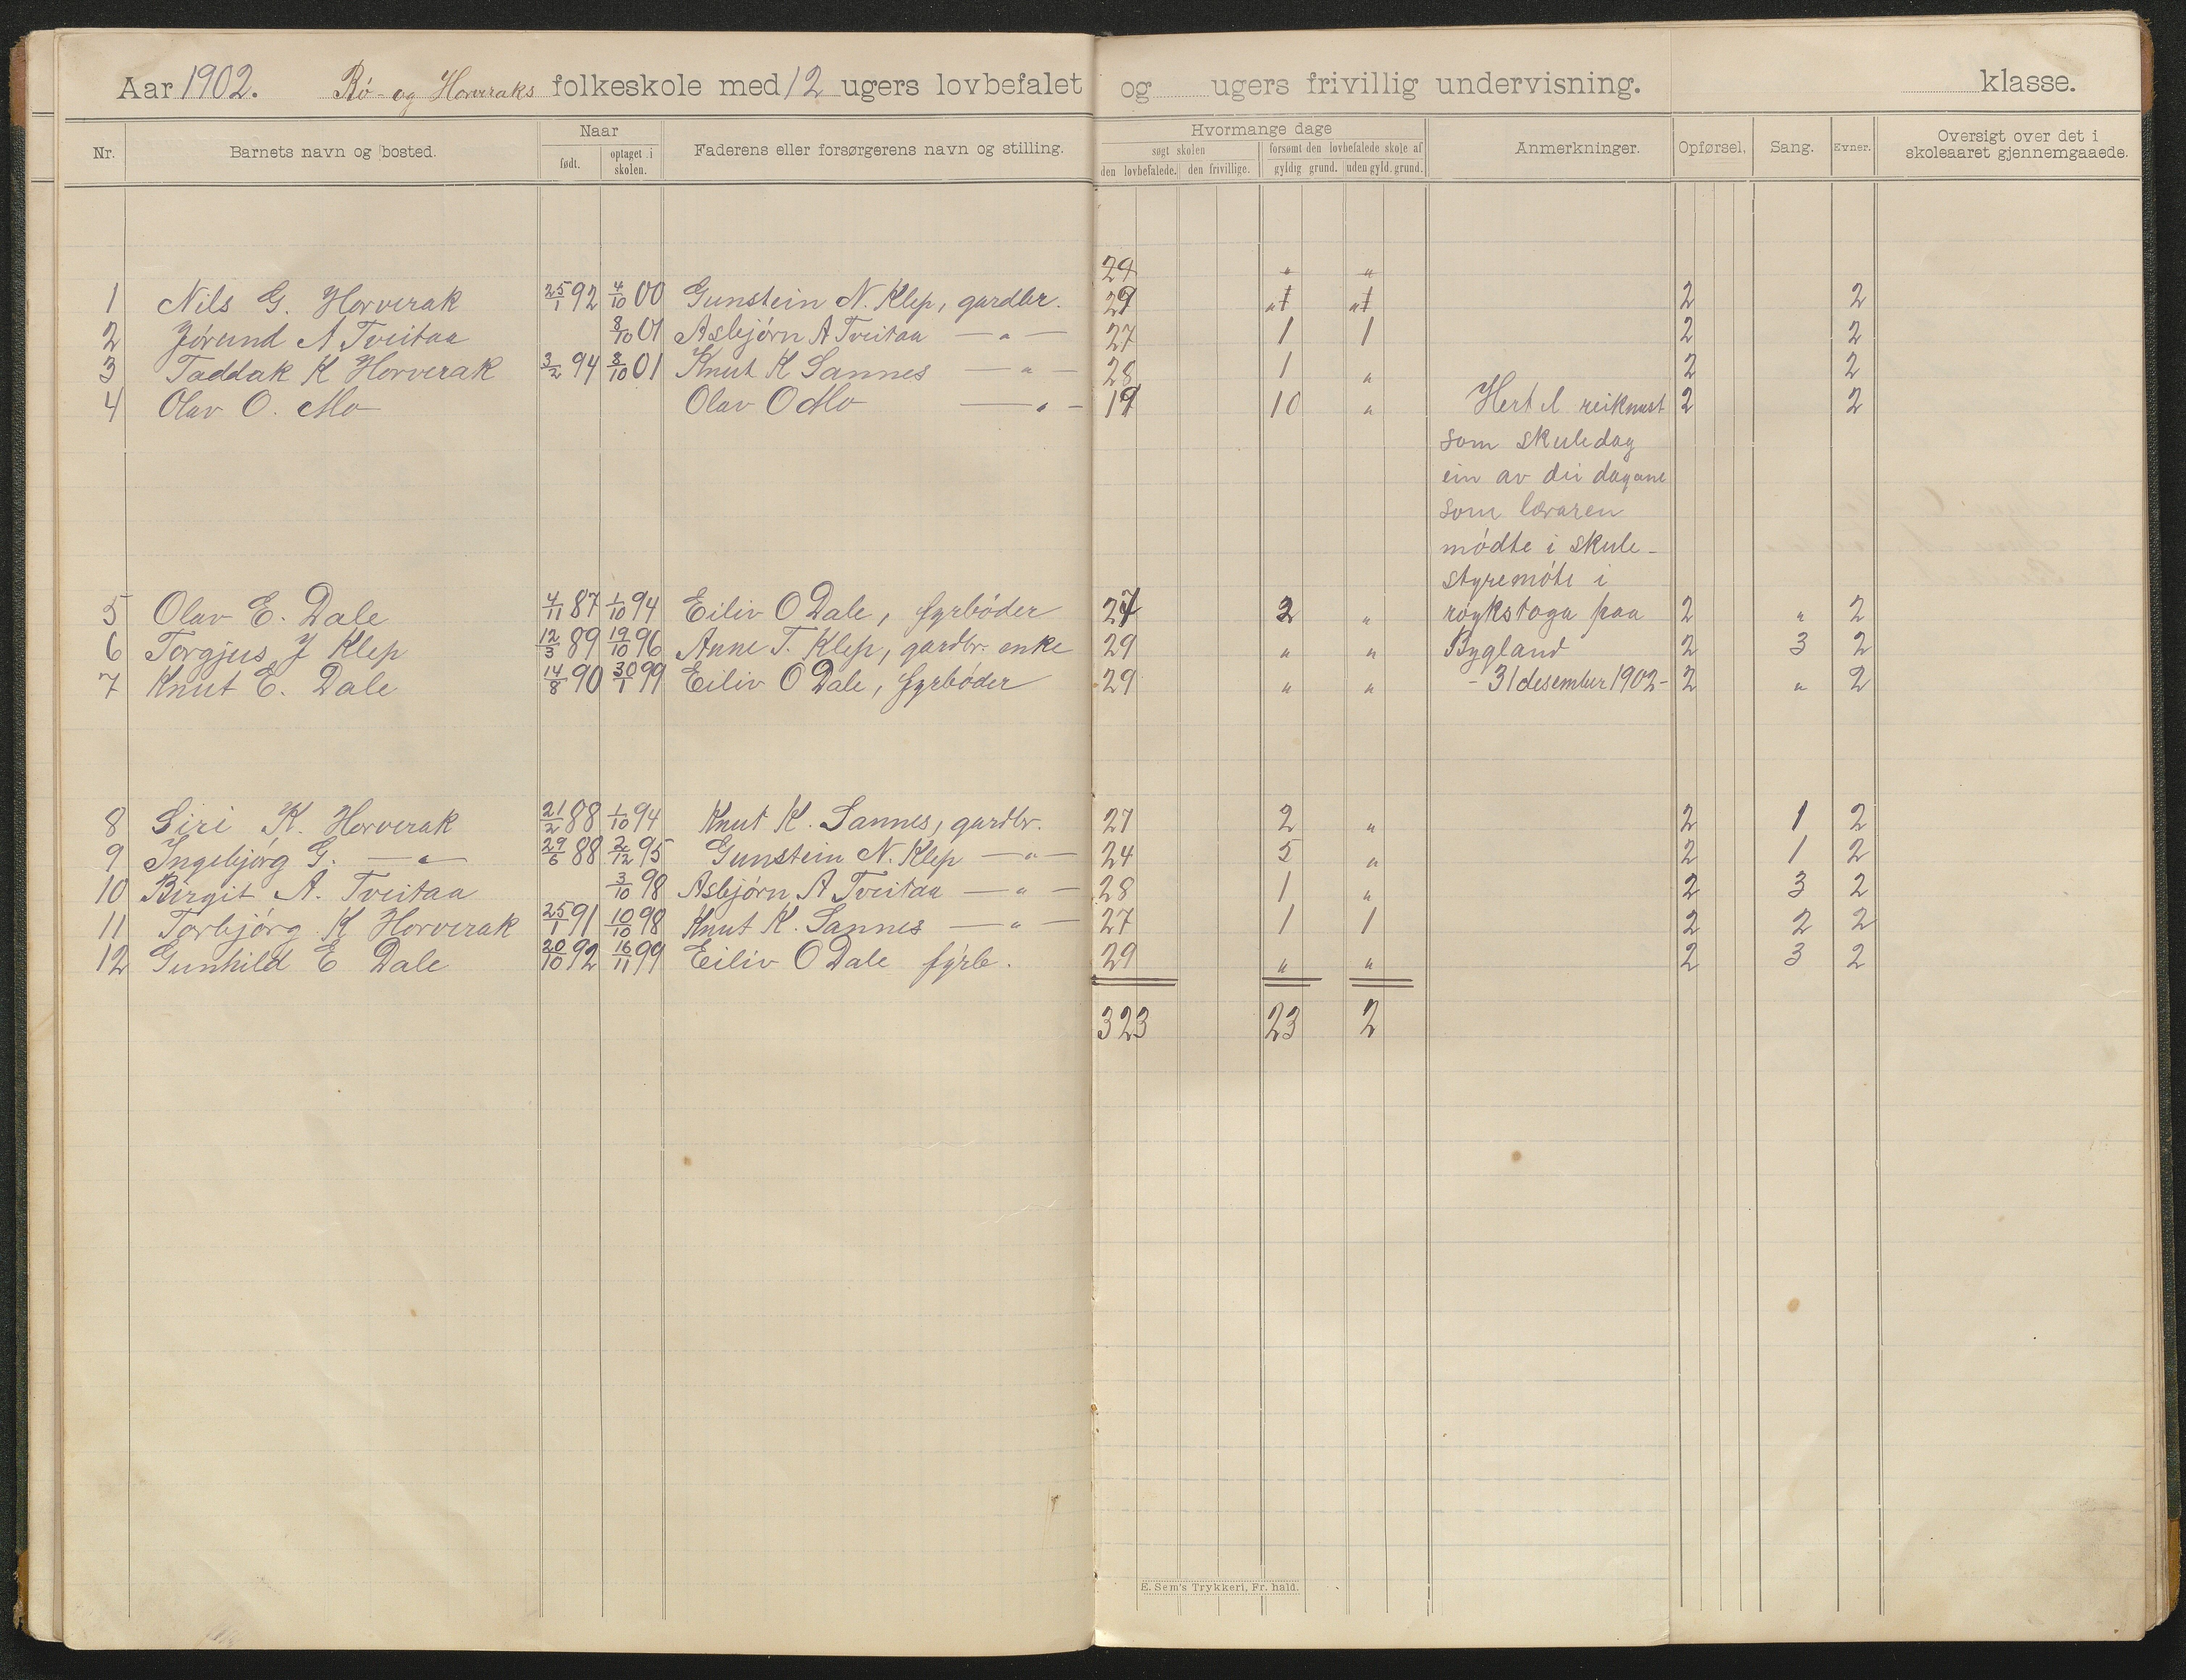 Aar 1902. Rø- og Horveraks folkeskole med 12 ugers lovbefalet og ugers frivillig undervisning. klasse.
Nr. Barnets navn og bosted. Naar født. optaget i skolen. Faderens eller forsørgerens navn og stilling. Hvormange dage søgt skolen den lovbefalede. den frivillige. forsømt den lovbefalede skole af gyldig grund. uden gyld. grund. Anmerkninger. Opførsel. Sang. Evner. Oversigt over det i skoleaaret gjennemgaaede.
29 " "
1 Nils G. Horverak 25/1 92 4/10 00 Gunstein N. Klep, gardbr. 29 " " 2 2
2 Jørund A Tveitaa 8/10 01 Asbjørn A Tveitaa — " — 27 1 1 2 2
3 Taddak K Horverak 3/2 94 8/10 01 Knut K Sannes — " — 28 1 " 2 2
4 Olav O. Mo Olav O Mo — " — 19 10 " Hert l reiknast 2 2
som skuledag
ein av dei dagane
som læraren
mødte i skule-
styremøte i
5 Olav E. Dale 4/11 87 1/10 94 Eiliv O Dale, fyrbøder 27 2 " røykstoga paa 2 " 2
6 Torgjus J Klep 12/3 89 19/10 96 Anne T. Klep, gardbr. enke 29 " " Bygland 2 3 2
7 Knut E. Dale 14/8 90 30/1 99 Eiliv O Dale, fyrbøder 29 " " - 31 desember 1902 - 2 " 2
8 Siri K. Horverak 21/2 88 1/10 94 Knut K. Sannes, gardbr. 27 2 " 2 1 2
9 Ingebjørg G. — " — 29/6 88 2/12 95 Gunstein N. Klep — " — 24 5 " 2 1 2
10 Birgit A. Tveitaa 3/10 98 Asbjørn A Tveitaa — " — 28 1 " 2 3 2
11 Torbjørg K Horverak 25/1 91 10/10 98 Knut K. Sannes — " — 27 1 1 2 2 2
12 Gunhild E Dale 20/10 92 16/11 99 Eiliv O Dale fyrb. 29 " " 2 3 2
323 23 2
E. Sem's Trykkeri, Fr. hald.